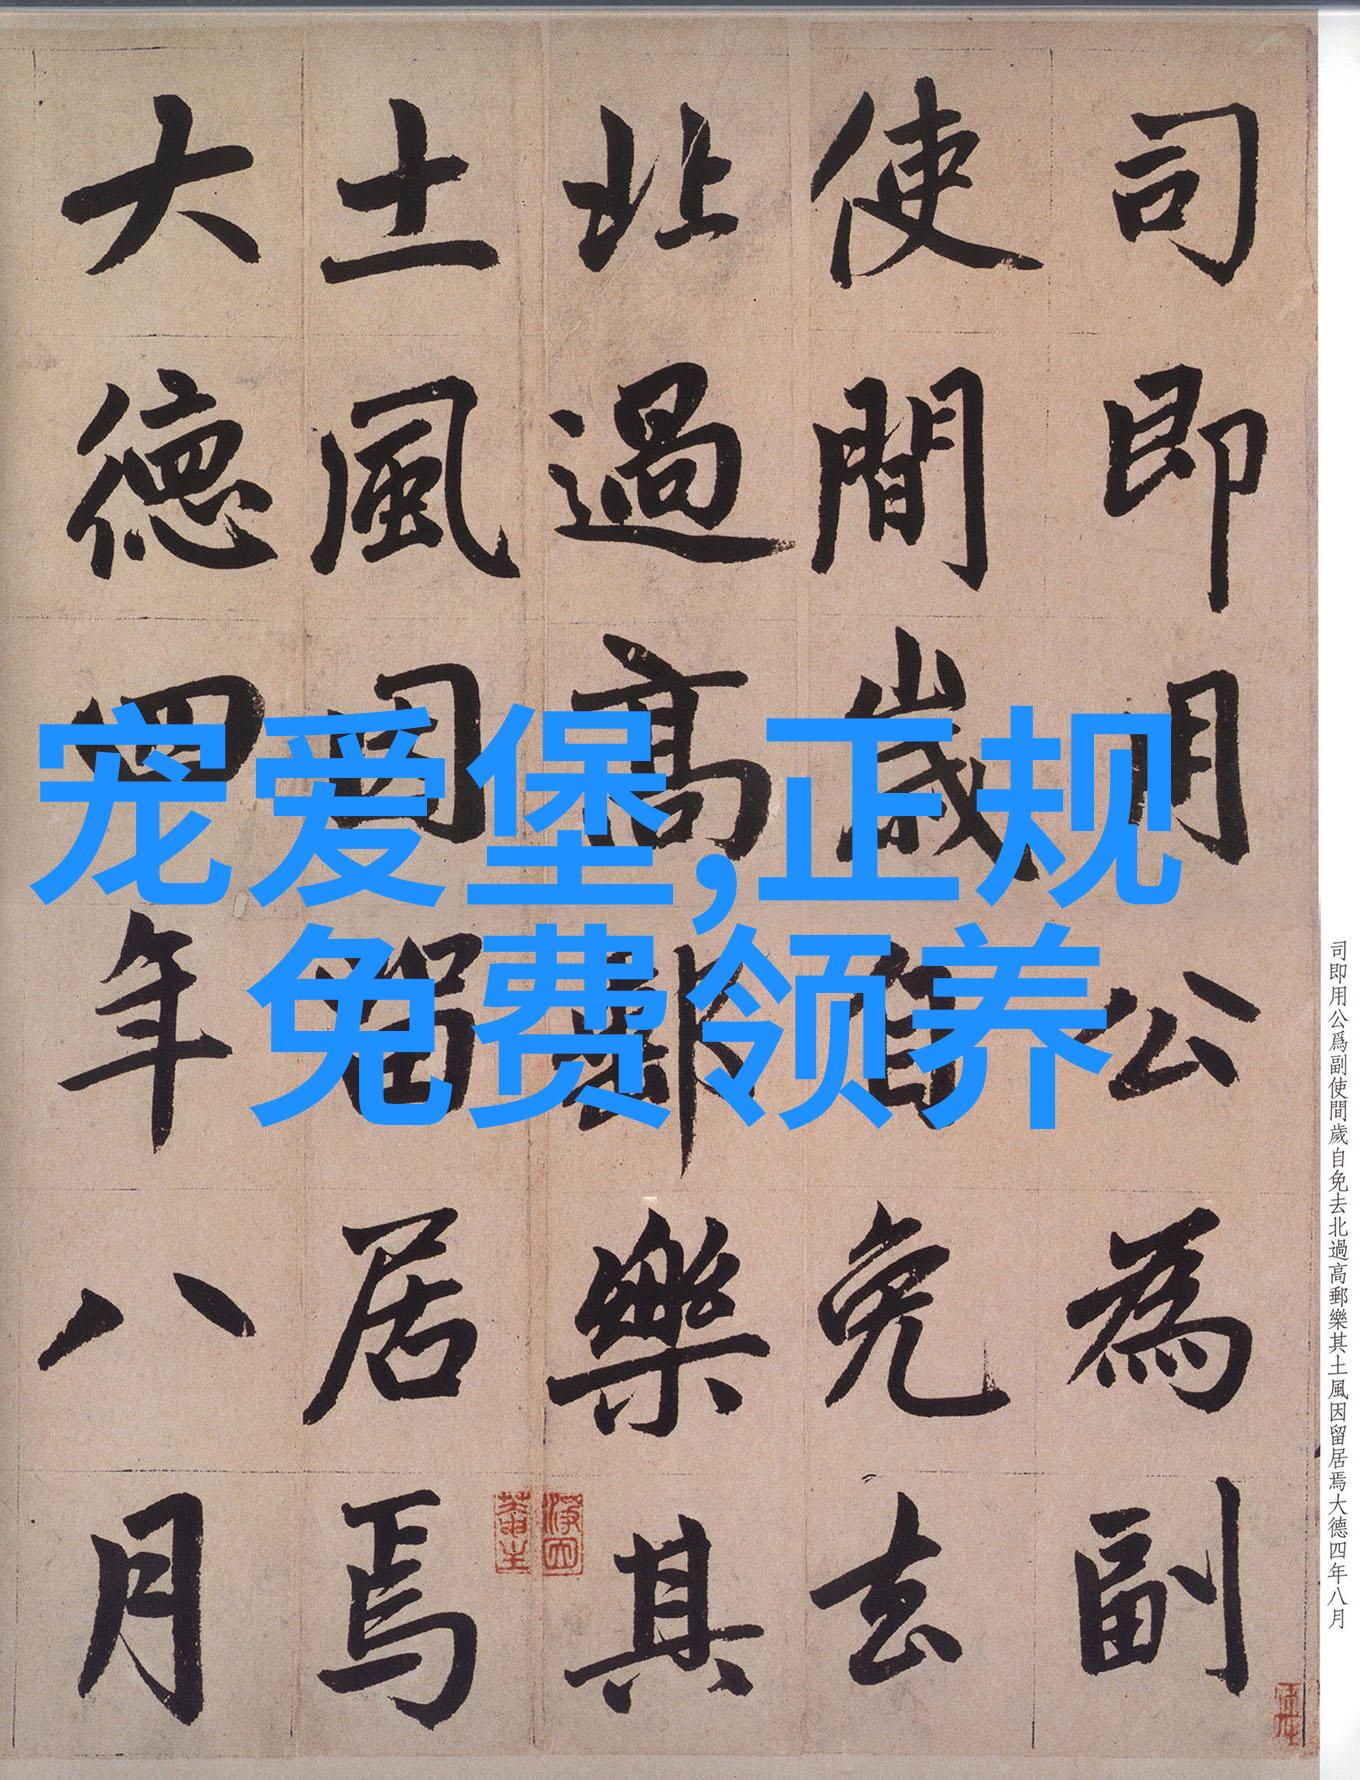 司即用公為副
使間歲自免去
北過高郵樂其
土風因留居焉
大德四年八月
宠爱堡,正规
免费领养
司即用公爲副使間歲自免去北過高郵樂其土風因留居焉大德四年八月